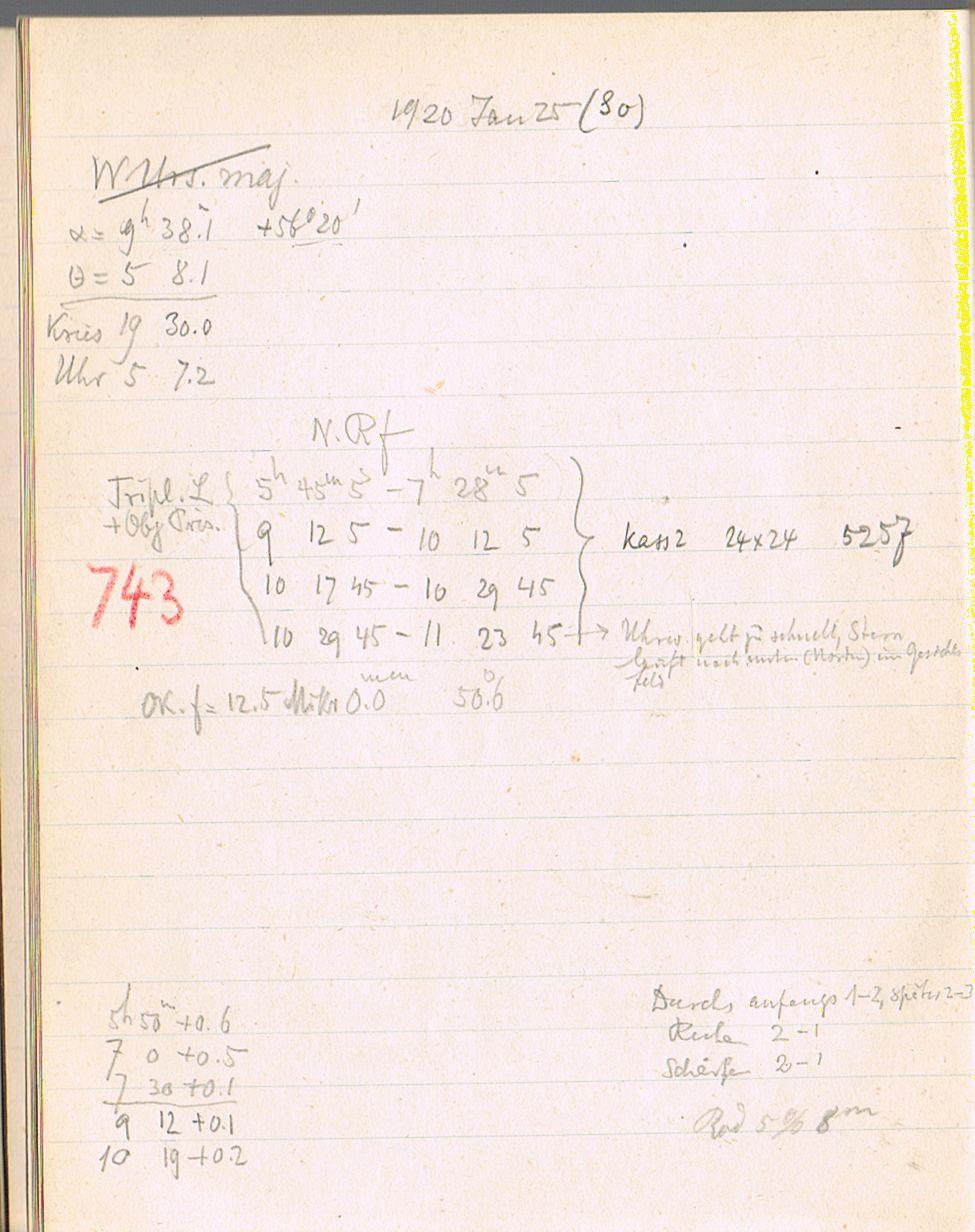 1920 Jan 25 (So)
W Urs. maj.
α = 9h 38.m1 +56° 20'
θ = 5 8.1
Kreis 19 30.0
Uhr 5 7.2
N. Rf
Tripl. L
+ Obj Pris.
743
5h 45m 5s – 7h 28m 5
9 12 5 – 10 12 5
10 17 45 – 10 29 45
10 29 45 – 11 23 45 →
Kass 2 24×24 5257
Uhrw. geht zu schnell, Stern
läuft nach unten (Norden) im Gesichts
feld
Ok. f = 12.5 Mikr 0.0 mm 50.°6
5h 50m +0.6
7 0 +0.5
7 30 +0.1
9 12 +0.1
10 19 +0.2
Durchs anfangs 1–2, später 2–3
Ruhe 2–1
Schärfe 2–1
8m